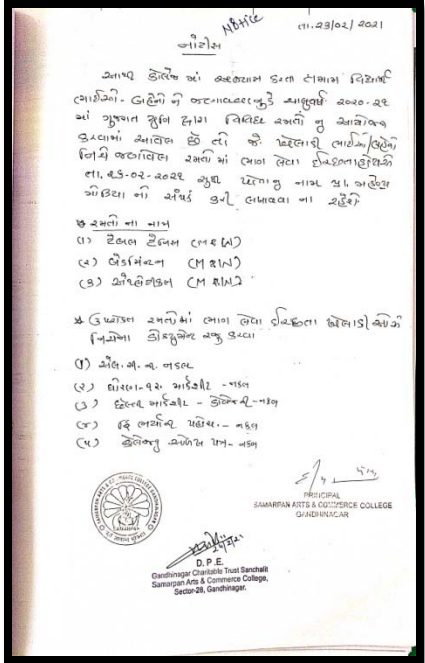 Notice
તા.૨૩/૦૨/૨૦૨૧
નોટીસ
આપણી કોલેજ માં અભ્યાસ કરતા તમામ વિદ્યાર્થી
ભાઈઓ - બહેનો ને જણાવવાનું કે ચાલુવર્ષ ૨૦૨૦-૨૧
માં ગુજરાત યુનિ દ્વારા વિવિધ રમતો નુ આયોજન
કરવામાં આવેલ છે તો જે ખેલાડી ભાઈઓ/બહેનો
નિચે જણાવેલ રમતો માં ભાગ લેવા ઈચ્છતા હોય
તા. ૨૬-૦૨-૨૦૨૧ સુધી પોતાનુ નામ પ્રા. મહેશ
નો સંપર્ક કરી લખાવવા ના રહેશે
* રમતો ના નામ
(૧) ટેબલ ટેનિસ (M & W)
(૨) બેડમિન્ટન (M & W)
(૩) એથ્લેટીક્સ (M & W)
* ઉપરોક્ત રમતોમાં ભાગ લેવા ઈચ્છતા ખેલાડીઓએ
નિચેના ડોક્યુમેન્ટ રજુ કરવા
(૧) એલ.સી.ની નકલ
(૨) ધોરણ-૧૨ માર્કશીટ - નકલ
(૩) છેલ્લી માર્કશીટ - કોલેજની - નકલ
(૪) ફિ ભર્યાની પહોંચ. - નકલ
(૫) કોલેજનુ ઓળખ પત્ર - નકલ
PRINCIPAL
SAMARPAN ARTS & COMMERCE COLLEGE
GANDHINAGAR
SAMARPAN ARTS & COMMERCE COLLEGE GANDHINAGAR
SAMARPAN
D. P. E.
Gandhinagar Charitable Trust Sanchalit
Samarpan Arts & Commerce College,
Sector-28, Gandhinagar.